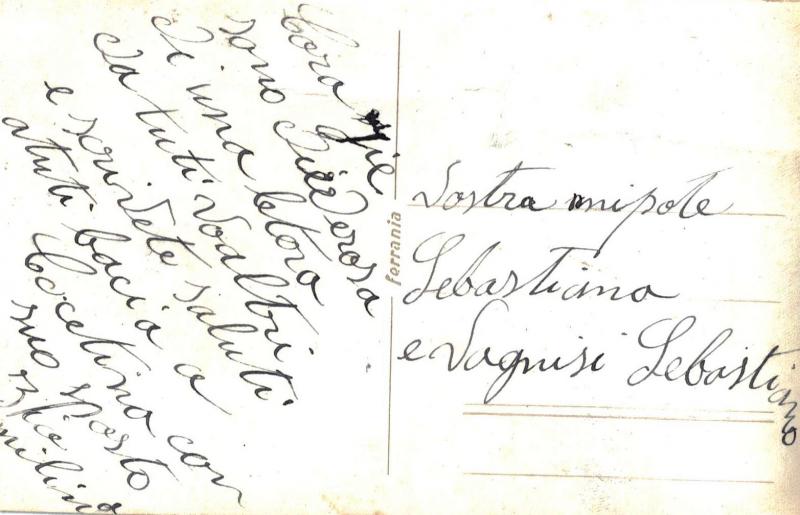 Cara zie
sono disiderosa
di una letora
da tuti voaltri
e scrivete saluti
a tuti bacia a
Cocetina con
suo sposto
zia
milina
ferrania
vostra nipote
Sebastiana
e Vagnisi Sebastiano